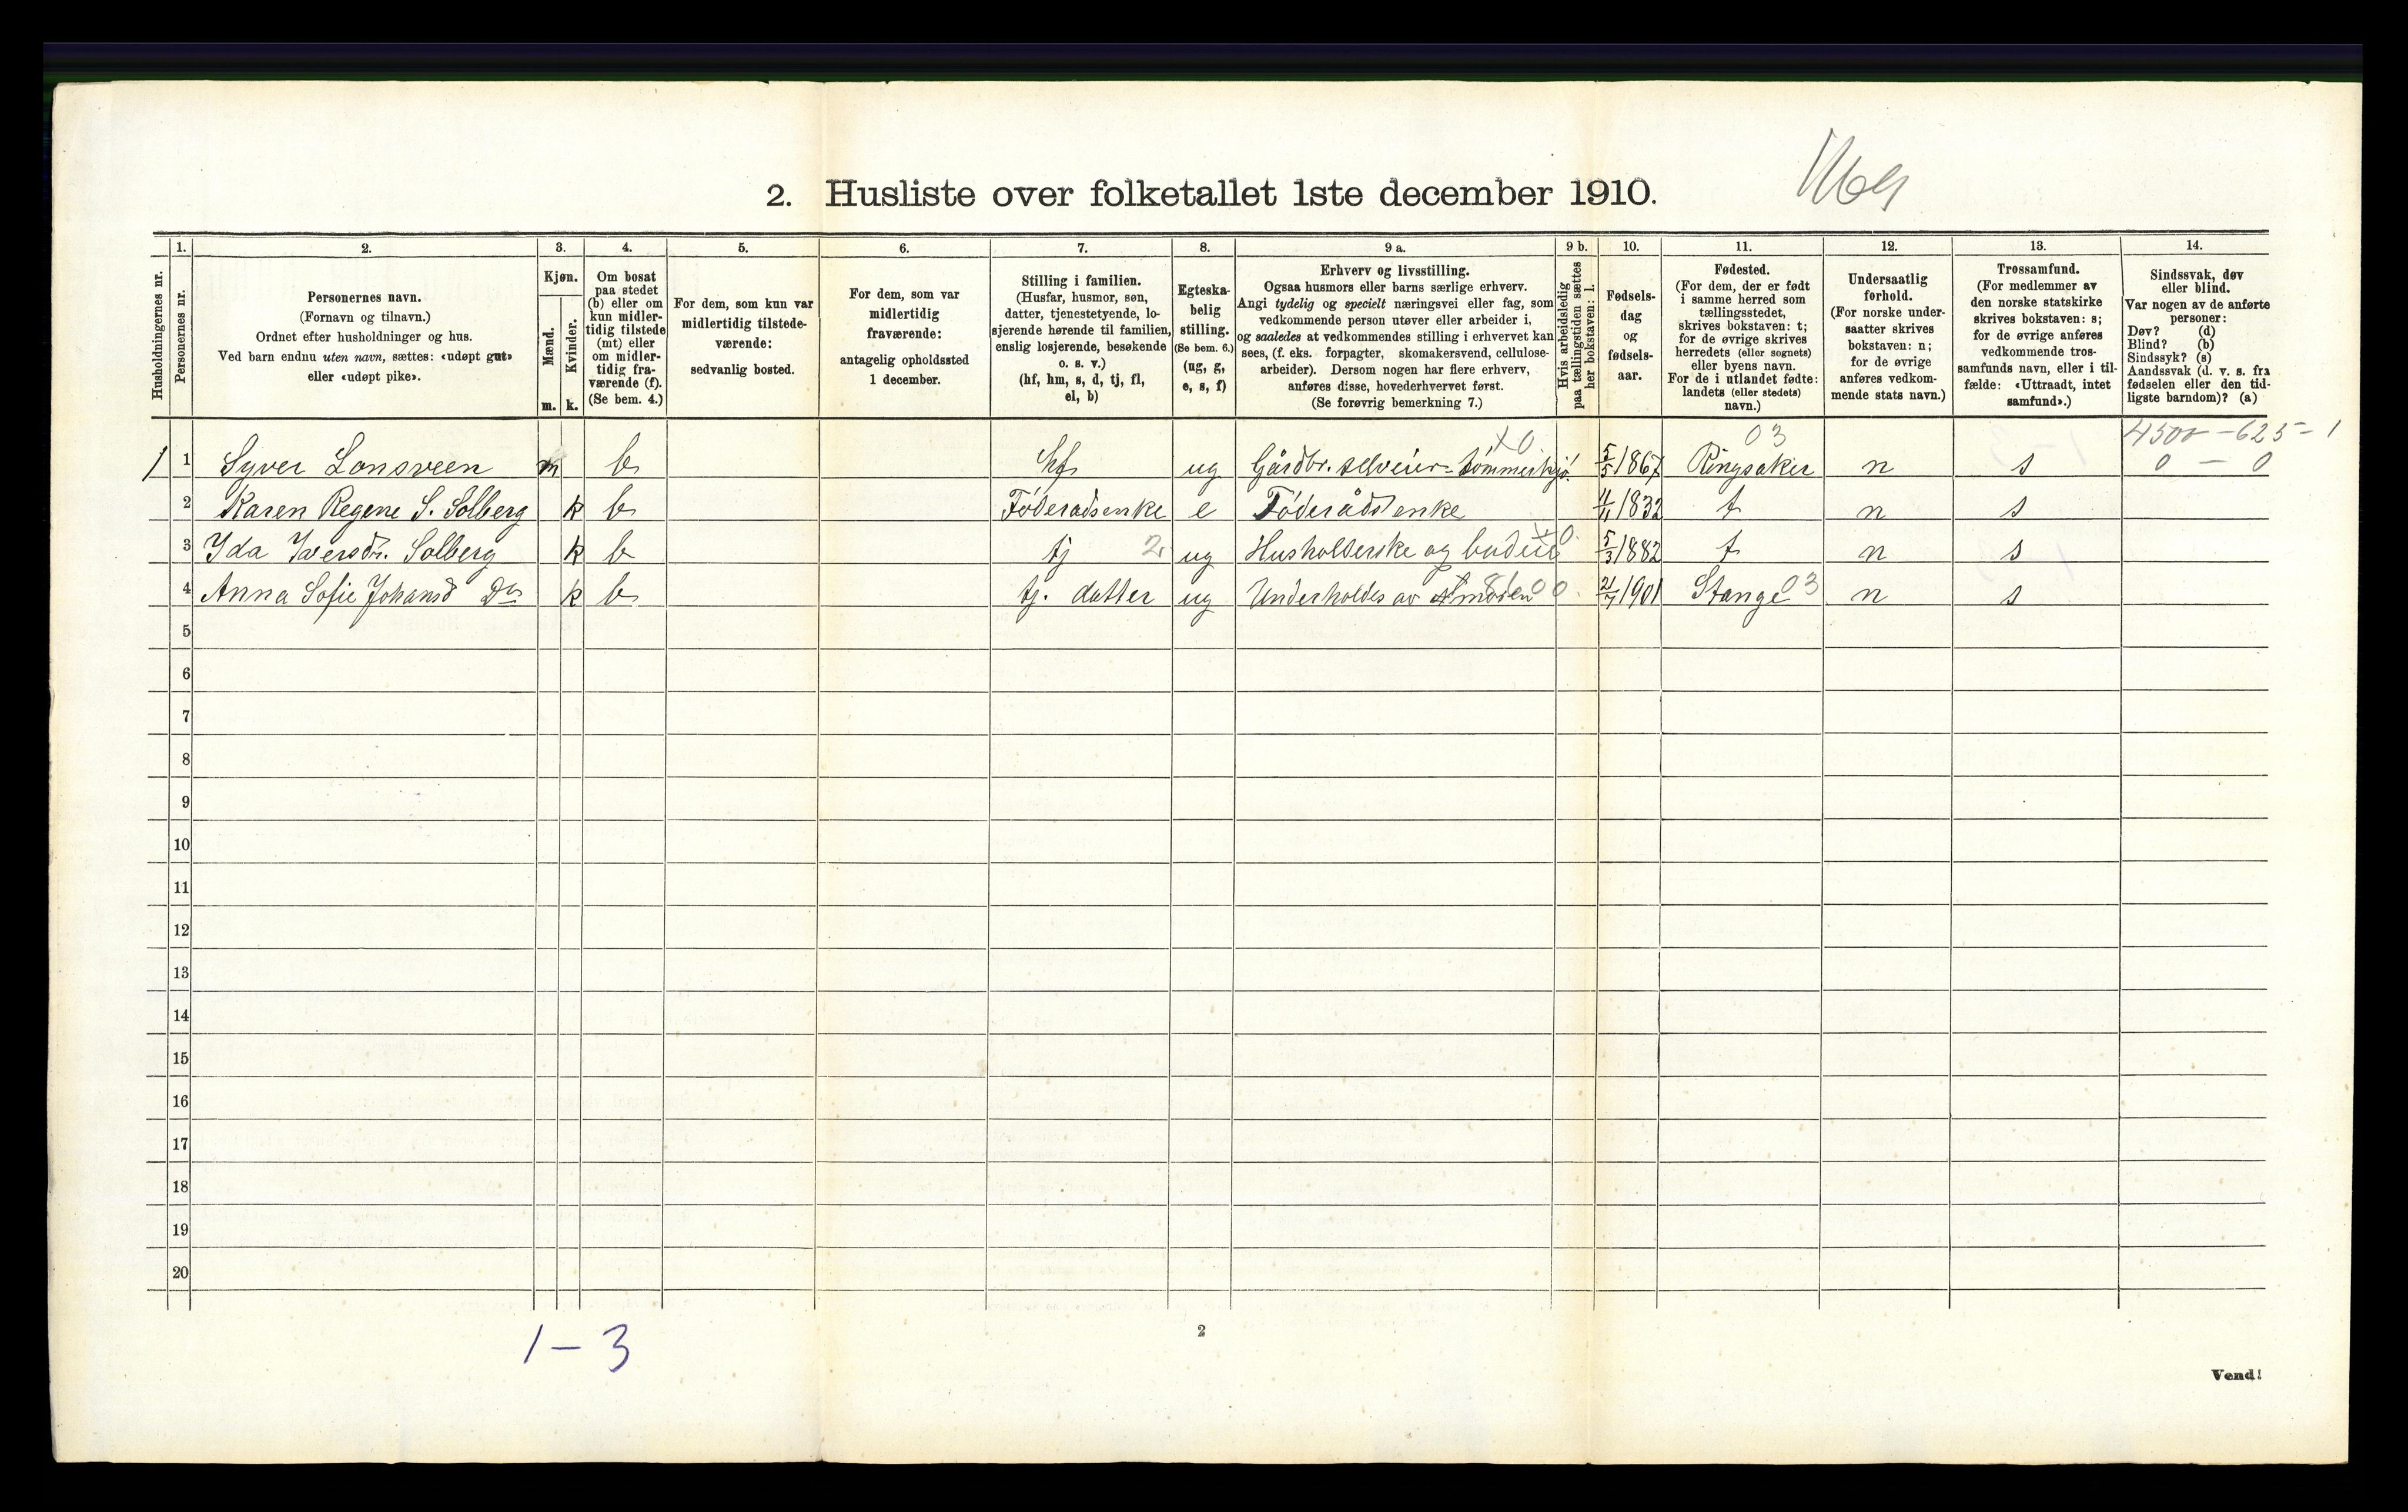 2. Husliste over folketallet 1ste december 1910.
1. 2. 3. 4. 5. 6. 7. 8. 9 a. 9 b. 10. 11. 12. 13. 14.
Husholdningernes nr.
Personernes nr.
Personernes navn.
(Fornavn og tilnavn.)
Ordnet efter husholdninger og hus.
Ved barn endnu uten navn, sættes: «udøpt gut»
eller «udøpt pike».
Kjøn.
Mænd.
Kvinder.
m. k.
Om bosat
paa stedet
(b) eller om
kun midler-
tidig tilstede
(mt) eller
om midler-
tidig fra-
værende (f).
(Se bem. 4.)
For dem, som kun var
midlertidig tilstede-
værende:
sedvanlig bosted.
For dem, som var
midlertidig
fraværende:
antagelig opholdssted
1 december.
Stilling i familien.
(Husfar, husmor, søn,
datter, tjenestetyende, lo-
sjerende hørende til familien,
enslig losjerende, besøkende
o. s. v.)
(hf, hm, s, d, tj, fl,
el, b)
Egteska-
belig
stilling.
(Se bem. 6.)
(ug, g,
e, s, f)
Erhverv og livsstilling.
Ogsaa husmors eller barns særlige erhverv.
Angi tydelig og specielt næringsvei eller fag, som
vedkommende person utøver eller arbeider i,
og saaledes at vedkommendes stilling i erhvervet kan
sees, (f. eks. forpagter, skomakersvend, cellulose-
arbeider). Dersom nogen har flere erhverv,
anføres disse, hovederhvervet først.
(Se forøvrig bemerkning 7.)
Hvis arbeidsledig
paa tællingstiden sættes
her bokstaven: l.
Fødsels-
dag
og
fødsels-
aar.
Fødested.
(For dem, der er født
i samme herred som
tællingsstedet,
skrives bokstaven: t;
for de øvrige skrives
herredets (eller sognets)
eller byens navn.
For de i utlandet fødte:
landets (eller stedets)
navn.)
Undersaatlig
forhold.
(For norske under-
saatter skrives
bokstaven: n;
for de øvrige
anføres vedkom-
mende stats navn.)
Trossamfund.
(For medlemmer av
den norske statskirke
skrives bokstaven: s;
for de øvrige anføres
vedkommende tros-
samfunds navn, eller i til-
fælde: «Uttraadt, intet
samfund».)
Sindssvak, døv
eller blind.
Var nogen av de anførte
personer:
Døv? (d)
Blind? (b)
Sindssyk? (s)
Aandssvak (d. v. s. fra
fødselen eller den tid-
ligste barndom)? (a)
X0 03 4500 - 625 - 1
1 1 Syver Lonsveen m b hf ug Gårdbr. selveier - tømmerkjø. 5/5 1867 Ringsaker n s 0 - 0
2 Karen Regene S. Solberg k b Føderådsenke e Føderådsenke 4/11 1832 t n s
3 Ida Iversdr. Solberg k b tj 2 ug Husholderske og budeie 5/3 1882 t n s
4 Anna Sofie Johansd Do k b tj. datter ug Underholdes av moren 21/7 1901 Stange 03 n s
5
6
7
8
9
10
11
12
13
14
15
16
17
18
19
20
1 - 3
2
Vend!